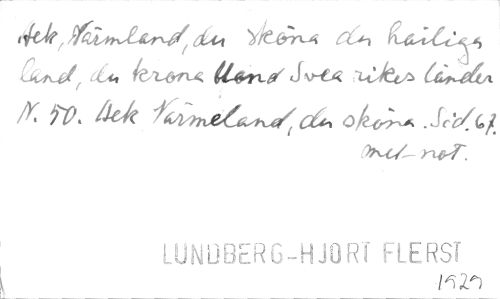 Ack, Värmland, du sköna du härliga
land, du krona bland Svea rikes länder
N. 50. Ack Värmeland, du sköna. Sid. 67.
met not.
LUNDBERG-HJORT FLERST
1929